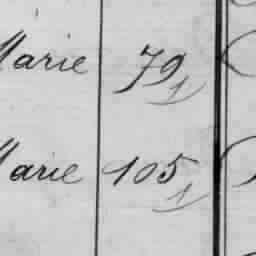 Marie 79 1
Marie 105 1